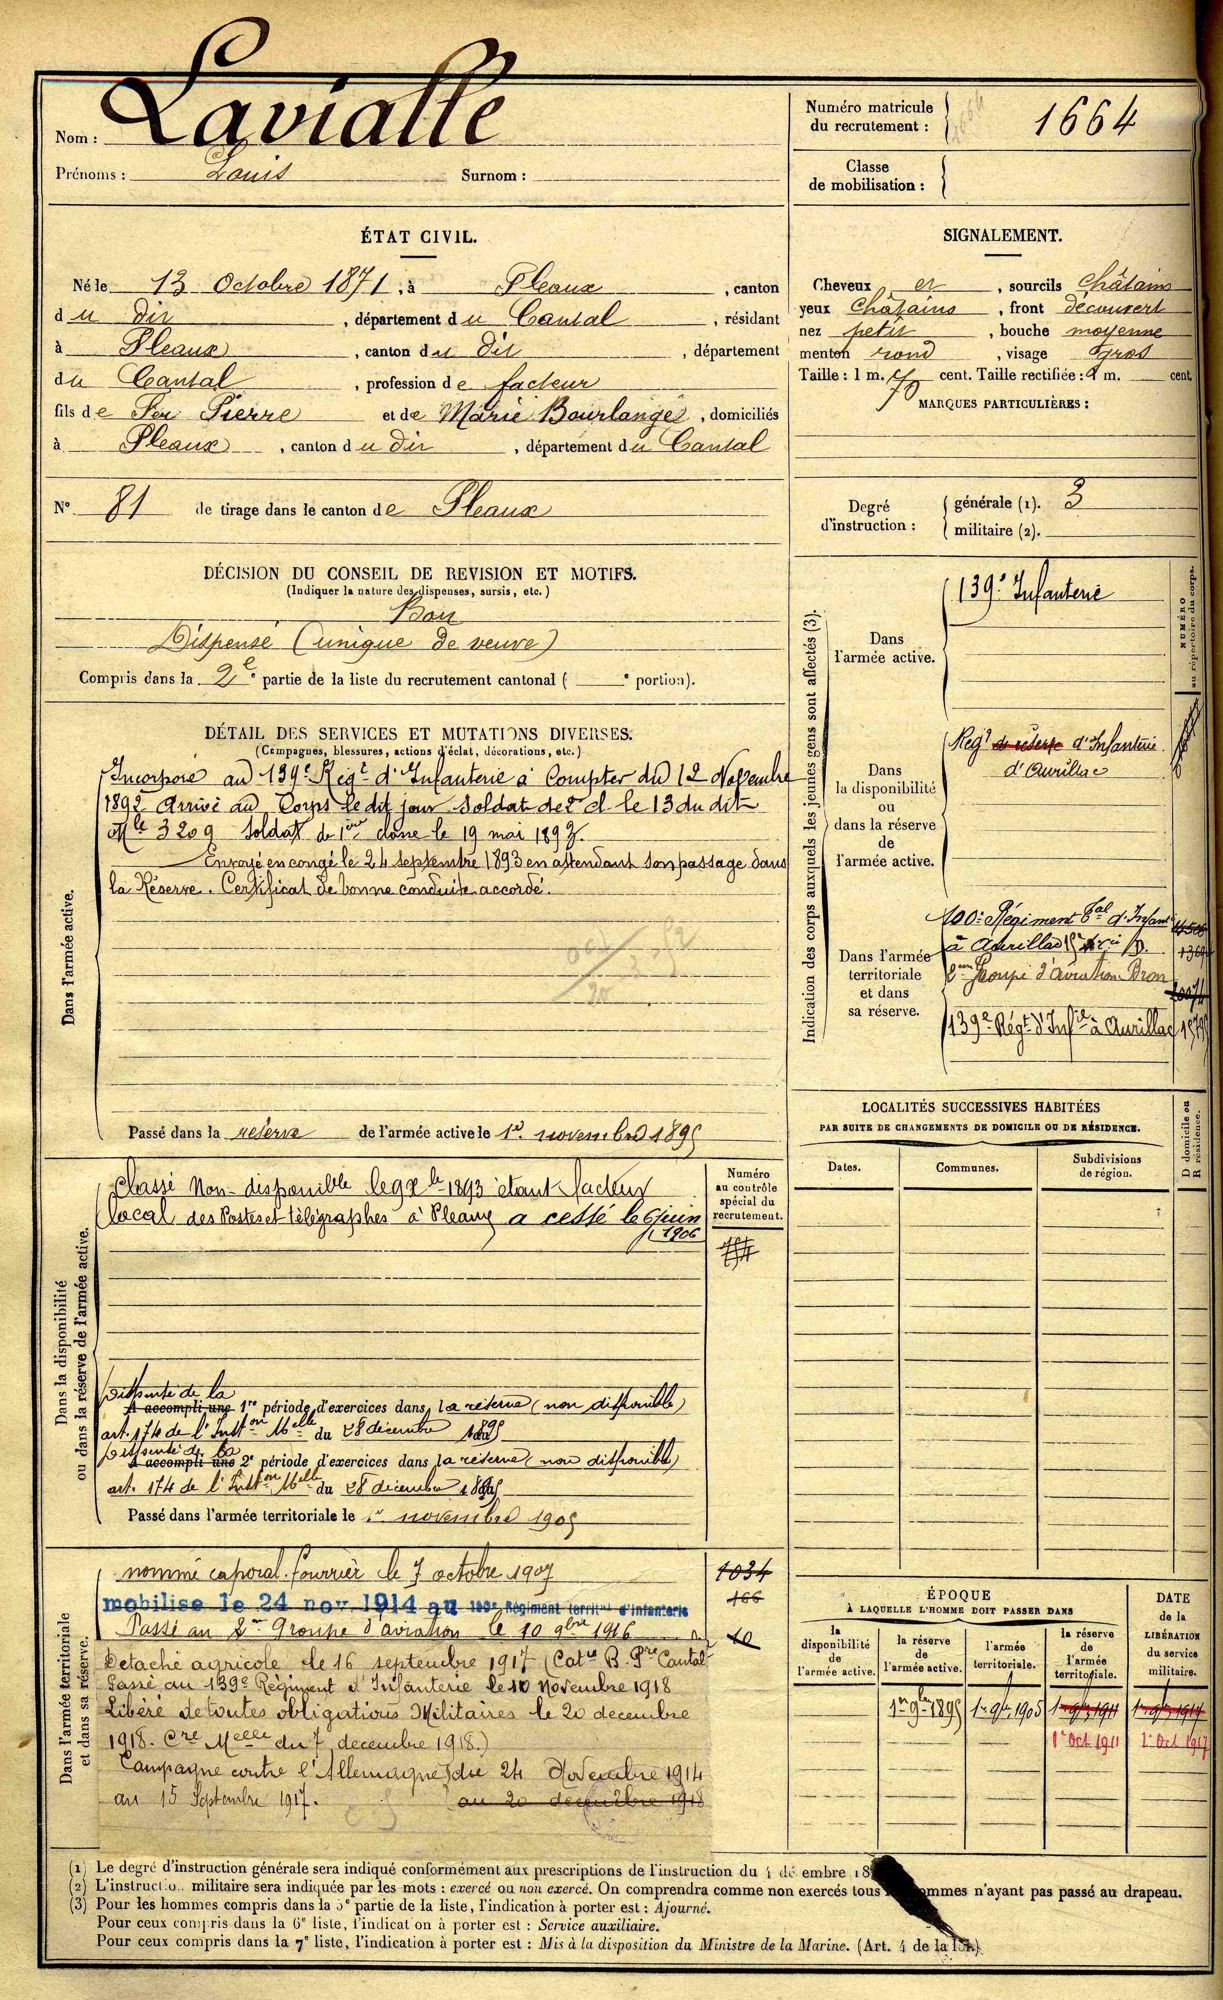 Nom : Lavialle
Prénoms : Louis Surnom :
Numéro matricule du recrutement : 1664
Classe de mobilisation :
ÉTAT CIVIL.
Né le 13 Octobre 1871, à Pleaux, canton
du dit, département du Cantal, résidant
à Pleaux, canton du dit, département
du Cantal, profession de facteur
fils de Feu Pierre et de Marie Bourlange, domiciliés
à Pleaux, canton du dit, département du Cantal
N° 81 de tirage dans le canton de Pleaux
SIGNALEMENT.
Cheveux et, sourcils châtains
yeux châtains, front découvert
nez petit, bouche moyenne
menton rond, visage gros
Taille : 1 m. 70 cent. Taille rectifiée : 1 m. cent.
MARQUES PARTICULIÈRES :
Degré d'instruction : générale (1). 3
militaire (2).
DÉCISION DU CONSEIL DE REVISION ET MOTIFS.
(Indiquer la nature des dispenses, sursis, etc.)
Bon
Dispensé (unique de veuve)
Compris dans la 2e partie de la liste du recrutement cantonal ( e portion).
DÉTAIL DES SERVICES ET MUTATIONS DIVERSES.
(Campagnes, blessures, actions d'éclat, décorations, etc.)
Dans l'armée active.
Incorporé au 139e Régt d'Infanterie à Compter du 12 Novembre
1892 Arrivé au Corps le dit jour Soldat de 2e cl. le 13 du dit
Mle 3209 Soldat de 1ère classe le 19 mai 1893.
Envoyé en congé le 24 septembre 1893 en attendant son passage dans
la Réserve. Certificat de bonne conduite accordé.
Passé dans la réserve de l'armée active le 1er novembre 1895
Indication des corps auxquels les jeunes gens sont affectés (3).
NUMÉRO au répertoire du corps.
Dans l'armée active.
139e Infanterie
Dans la disponibilité ou dans la réserve de l'armée active.
Regt de réserve d'Infanterie
d'Aurillac
Dans l'armée territoriale et dans sa réserve.
100e Régiment Tal d'Infant
à Aurillac
2eme Groupe d'aviation Bron
139e Régt d'Infie à Aurillac
LOCALITÉS SUCCESSIVES HABITÉES
PAR SUITE DE CHANGEMENTS DE DOMICILE OU DE RÉSIDENCE.
D domicile ou R résidence.
Dates. Communes. Subdivisions de région.
Dans la disponibilité ou dans la réserve de l'armée active.
Numéro au contrôle spécial du recrutement.
Classé Non-disponible le 1893 étant facteur
local des Postes et télégraphes à Pleaux a cessé le 6 juin
1906
Dispensé de la
A accompli une 1re période d'exercices dans la réserve (non disponible)
art. 174 de l'Inston Melle du 28 décembre 1895
Dispensé de la
A accompli une 2e période d'exercices dans la réserve (non disponible)
art. 174 de l'Inston Melle du 28 décembre 1895
Passé dans l'armée territoriale le 1er novembre 1905
Dans l'armée territoriale et dans sa réserve.
nommé caporal-fourrier le 7 octobre 1907
1034
166
mobilisé le 24 nov. 1914 au 100e Régiment territal d'Infanterie
Passé au 2me Groupe d'aviation le 10 9bre 1916
10
Détaché agricole le 16 septembre 1917 (Catie B. Pre Cantal
Passé au 139e Régiment d'Infanterie le 10 Novembre 1918
Libéré de toutes obligations Militaires le 20 decembre
1918. Cre Melle du 7 decembre 1918.)
Campagne contre l'Allemagne du 24 Novembre 1914
au 15 Septembre 1917. au 20 decembre 1918
ÉPOQUE
À LAQUELLE L'HOMME DOIT PASSER DANS
DATE de la LIBÉRATION du service militaire.
la disponibilité de l'armée active. la réserve de l'armée active. l'armée territoriale. la réserve de l'armée territoriale.
1er 9bre 1895 1er 9bre 1905 1er 9bre 1911 1er 9bre 1917
1er Oct 1911 1er Oct 1917
(1) Le degré d'instruction générale sera indiqué conformément aux prescriptions de l'instruction du 4 décembre 18
(2) L'instruction militaire sera indiquée par les mots : exercé ou non exercé. On comprendra comme non exercés tous les hommes n'ayant pas passé au drapeau.
(3) Pour les hommes compris dans la 5e partie de la liste, l'indication à porter est : Ajourné.
Pour ceux compris dans la 6e liste, l'indication à porter est : Service auxiliaire.
Pour ceux compris dans la 7e liste, l'indication à porter est : Mis à la disposition du Ministre de la Marine. (Art. 4 de la loi.)